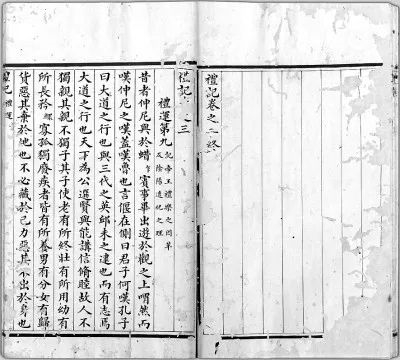 禮記卷之二終
禮記 之三
禮運第九 記帝王禮樂之因革及陰陽造化之理
昔者仲尼與於蜡賓事畢出遊於觀之上喟然而
嘆仲尼之嘆蓋嘆魯也言偃在側曰君子何嘆孔子
曰大道之行也與三代之英丘未之逮也而有志焉
大道之行也天下為公選賢與能講信脩睦故人不
獨親其親不獨子其子使老有所終壯有所用幼有
所長矜寡孤獨廢疾者皆有所養男有分女有歸
貨惡其棄於地也不必藏於己力惡其不出於身也
禮記 禮運